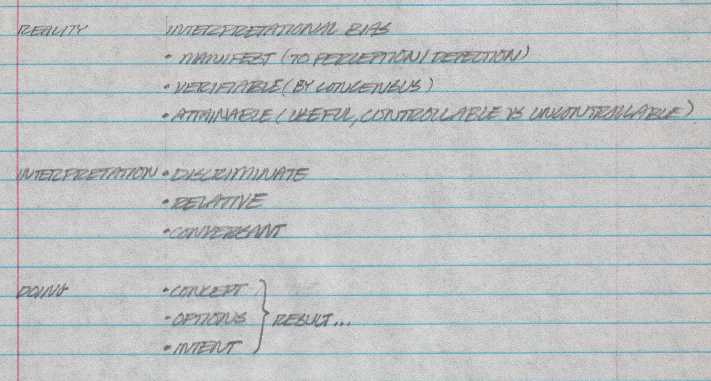 REALITY INTERPRETATIONAL BIAS
• MANIFEST (TO PERCEPTION/DETECTION)
• VERIFIABLE (BY CONCENSUS)
• ATTAINABLE (USEFUL, CONTROLLABLE VS UNCONTROLLABLE)
INTERPRETATION • DISCRIMINATE
• RELATIVE
• CONVERSANT
DOING • CONCEPT
• OPTIONS } RESULT...
• INTENT